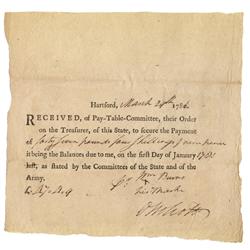 Hartford, March 24th 1786
RECEIVED, of Pay-Table-Committee, their Order
on the Treasurer, of this State, to secure the Payment
of forty seven pounds four shillings
it being the Balances due to me, on the first Day of January 178
last, as stated by the Committees of the State and of the
Army.
Wm Burns
his Mark